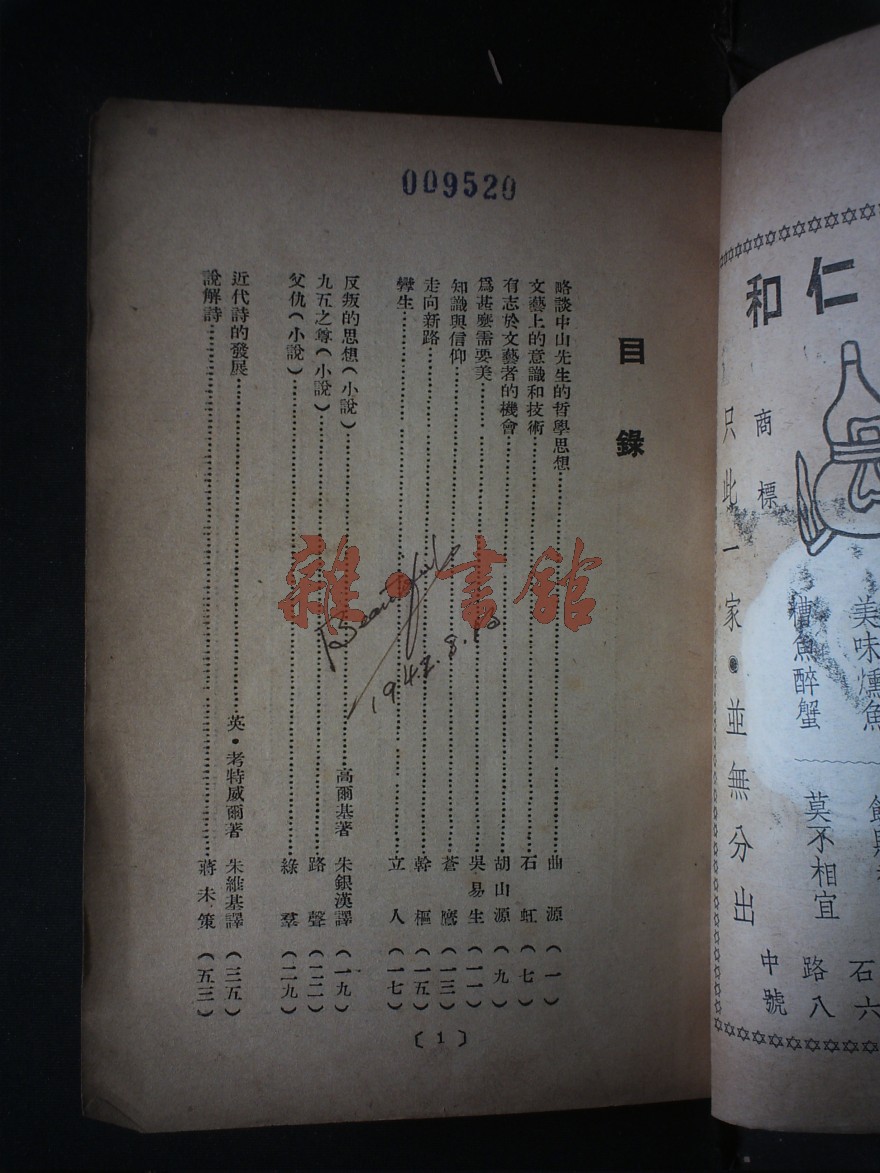 009520
目錄
略談中山先生的哲學思想 曲源（一）
文藝上的意識和技術 石虹（七）
有志於文藝者的機會 胡山源（九）
爲甚麼需要美 吳易生（一一）
知識與信仰 蒼鷹（一三）
走向新路 幹樞（一五）
孿生 立人（一七）
反叛的思想（小說） 高爾基著 朱銀漢譯（一九）
九五之尊（小說） 路聲（二二）
父仇（小說） 綠羣（二九）
近代詩的發展 英・考特威爾著 朱維基譯（三五）
說解詩 蔣未策（五三）
〔1〕
Beautiful
1942.8.
雜・書館
仁和
商標
美味燻魚
糟魚醉蟹
莫不相宜
石六
路八
中號
只此一家・並無分出